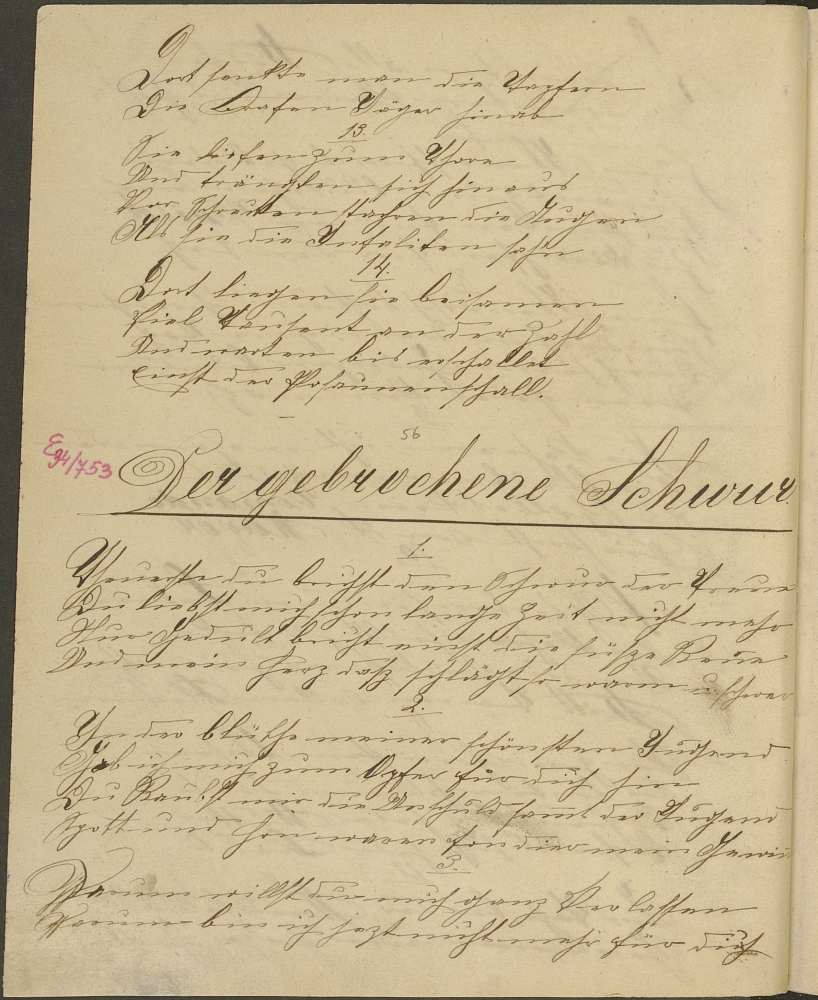 Dort senkte man die Tapfern
Die Brafen Jäger hinab
13.
Sie liefen zum Thore
Und trängten sich hinaus
Vor Schrecken starren die Augen
Als sie die Infaliten sahn
14.
Dort liegen sie beisamen
Viel Tausent an der Zahl
Und warten bis erschallet
Einst der Posaunenschall.
56
E 94/753
Der gebrochene Schwur.
1.
Theuerste du brichst den Schwur der Treue
Du liebst mich schon lange Zeit nicht mehr
Nur Gedult bricht einst die süsze Reue
Und mein Herz dasz schlägt so warm u. schwer
2.
In der blüthe meiner schönsten Jugend
Gab ich mich zum Opfer für dich hin
Du Raubst mir die Unschuld samt der Tugend
Spott und Hon waren fon dier mein Gewin
3.
Warum willst du mich ganz Verlassen
Warum bin ich jezt nicht mehr für dich